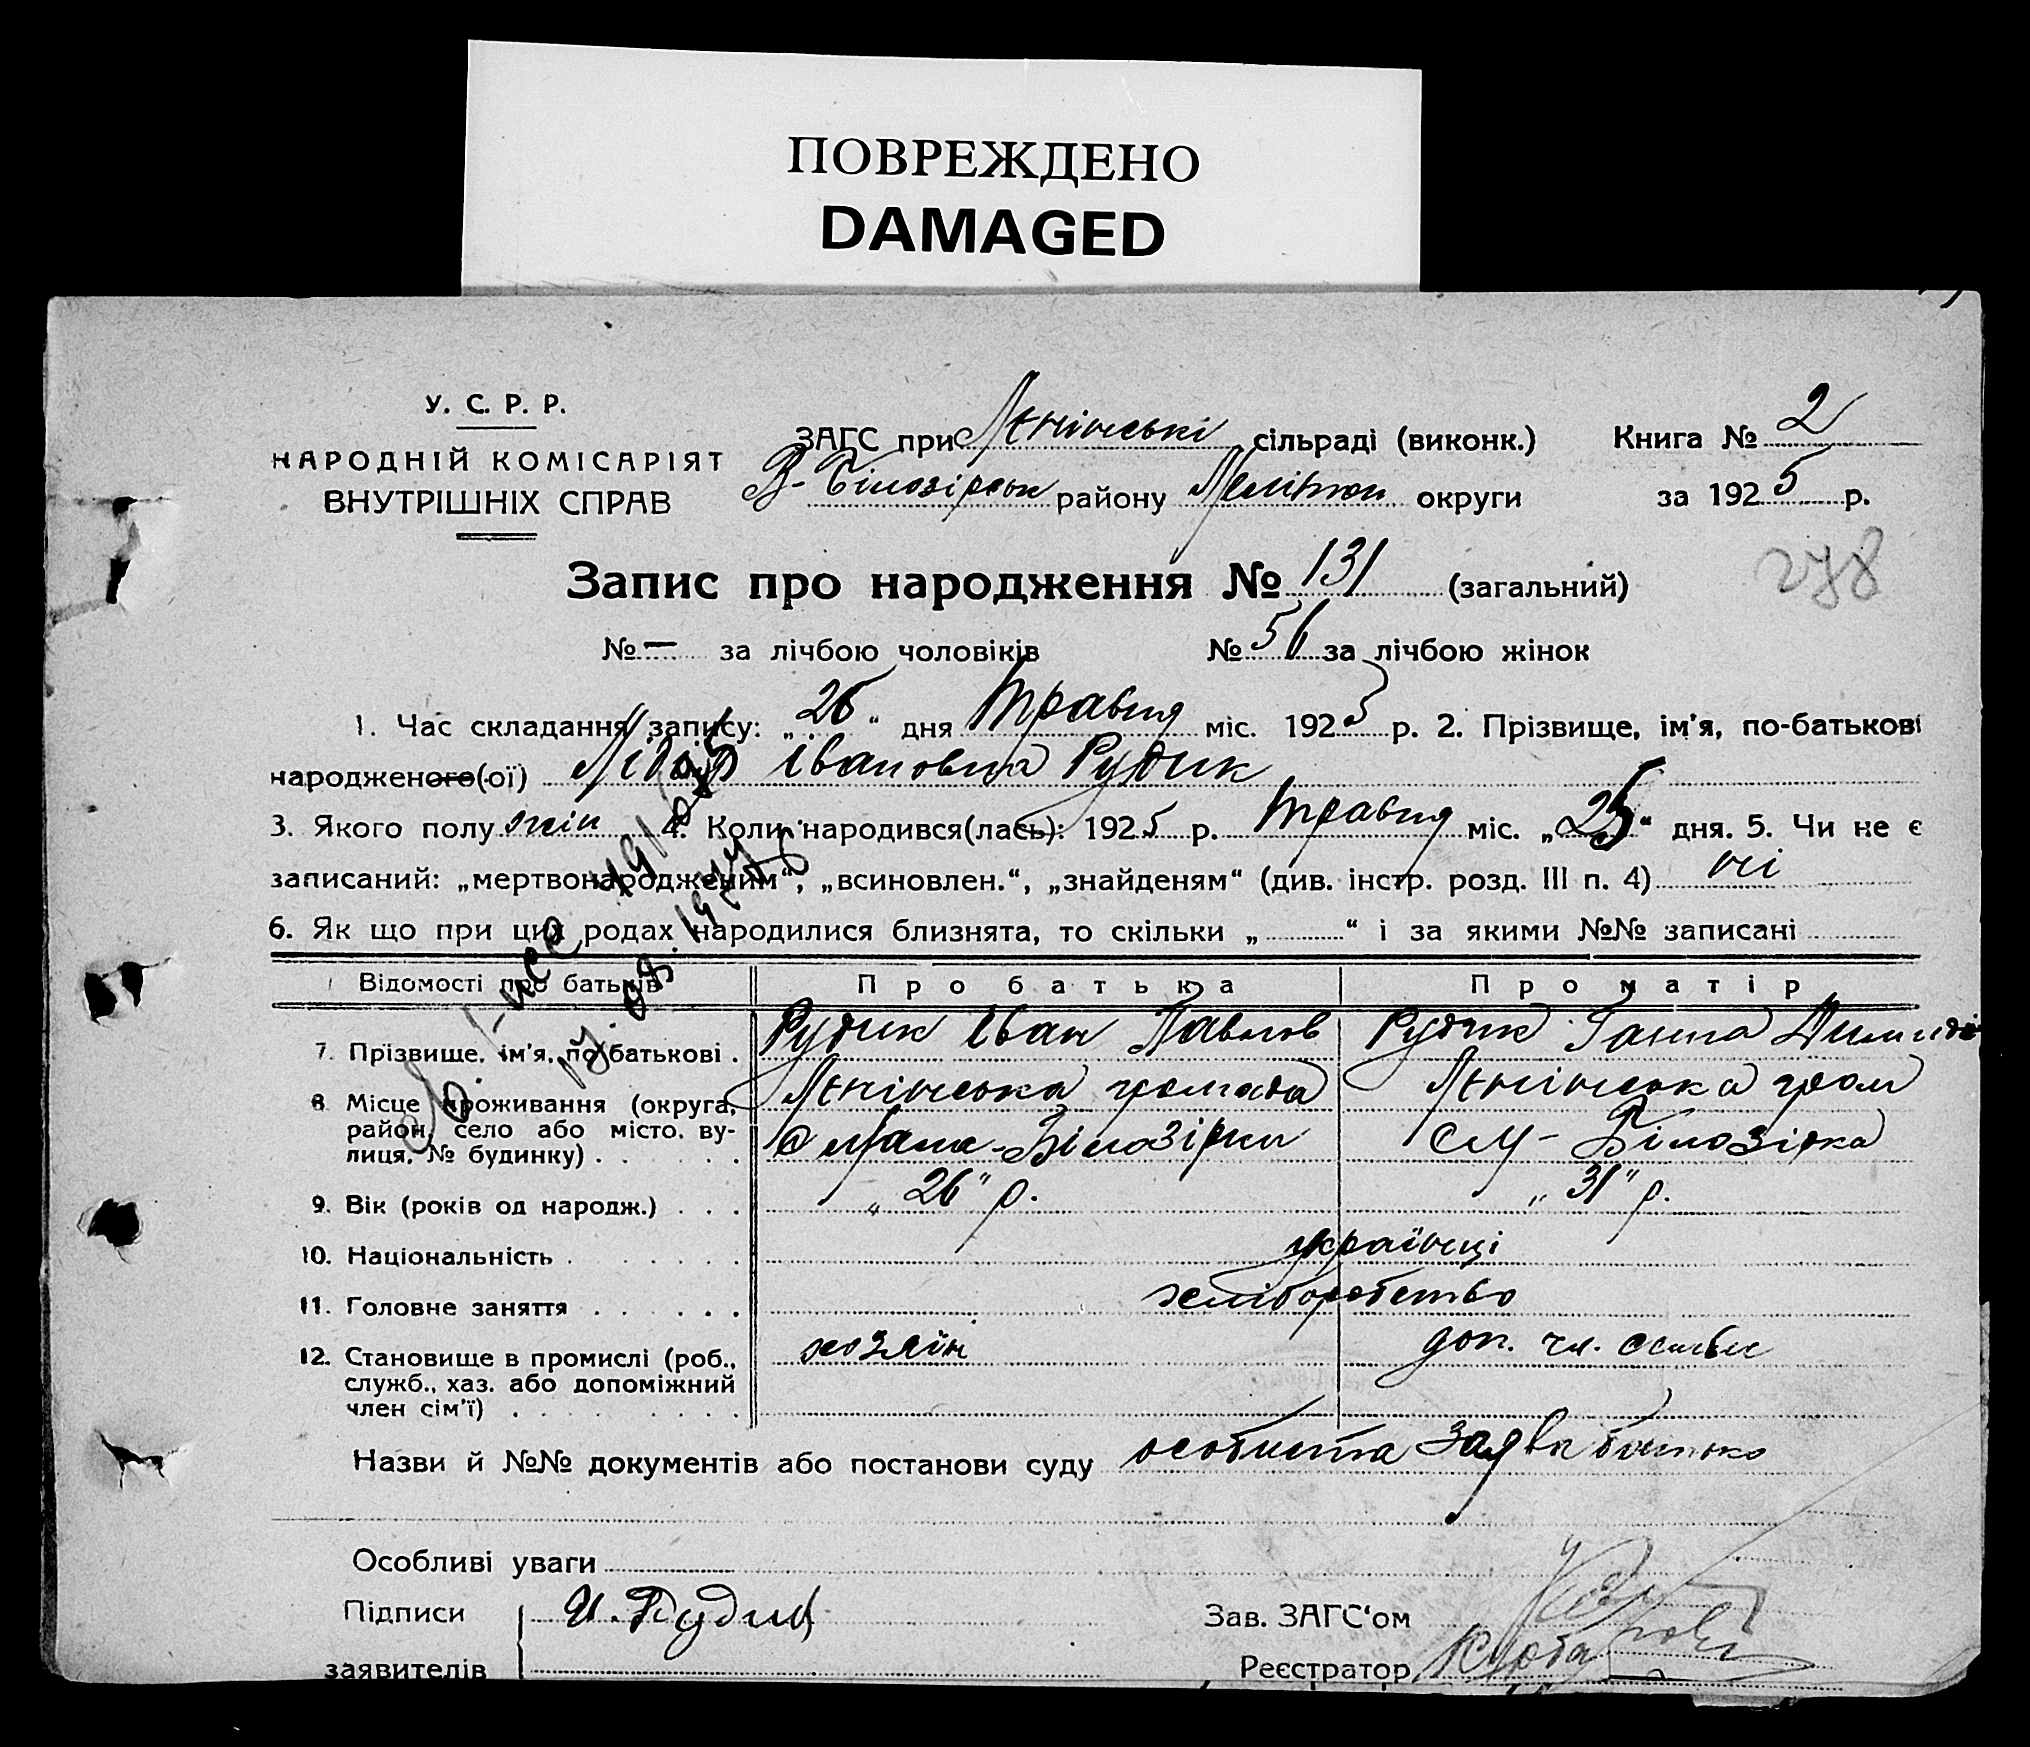 ПОВРЕЖДЕНО
DAMAGED
У. С. Р. Р.
НАРОДНІЙ КОМІСАРІЯТ
ВНУТРІШНІХ СПРАВ
ЗАГС при Ленінські сільраді (виконк.) Книга № 2
В-Білозірськ району Меліт округи за 1925 р.
Запис про народження № 131 (загальний)
278
№ — за лічбою чоловіків № 56 за лічбою жінок
1. Час складання запису: „26“ дня травня міс. 1925 р. 2. Прізвище, ім'я, по-батькові
народженого(ої) Лідія Івановна Рудик
3. Якого полу жін 4. Коли народився(лась): 1925 р. травня міс. „25“ дня. 5. Чи не є
записаний: „мертвонародженим“, „всиновлен.“, „знайденям“ (див. інстр. розд. III п. 4) ні
6. Як що при цих родах народилися близнята, то скільки „ “ і за якими №№ записані
Відомості про батьків Про батька Про матір
7. Прізвище, ім'я, по батькові . Рудик Іван Павлов Рудик Ганна
8. Місце проживання (округа, Ленінська громада Ленінська гром
район, село або місто, ву- с Мала-Білозірки с М-Білозірка
лиця, № будинку) . . . . . .
9. Вік (років од народж.) . . . „26“ р. „31“ р.
10. Національність . . . . . . . українці
11. Головне заняття . . . . . . хліборобство
12. Становище в промислі (роб., хозяїн доп. чл. семьи
служб., хаз. або допоміжний
член сім'ї) . . . . . . . . .
Назви й №№ документів або постанови суду особиста заява батька
Особливі уваги
Підписи И. Рудик Зав. ЗАГС'ом
заявителів Реєстратор